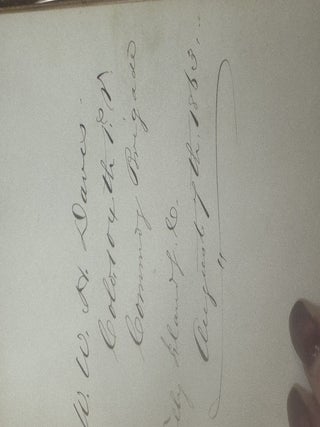 W. W. H. Davis.
Col. 104th P. V.
Commdg Brigade
Island, S. C.
August 7th, 1863.